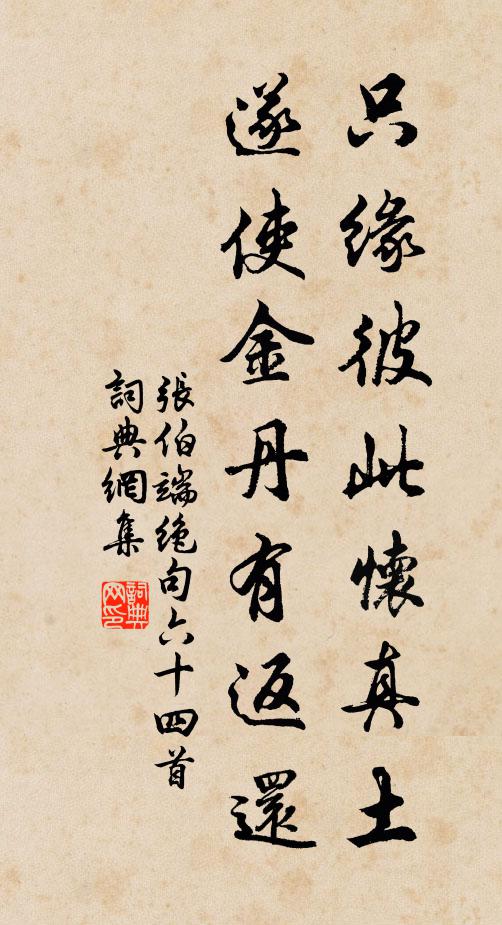 只緣彼此懷真土
遂使金丹有返還
張伯端絶句六十四首
詞典網集
詞典
网印